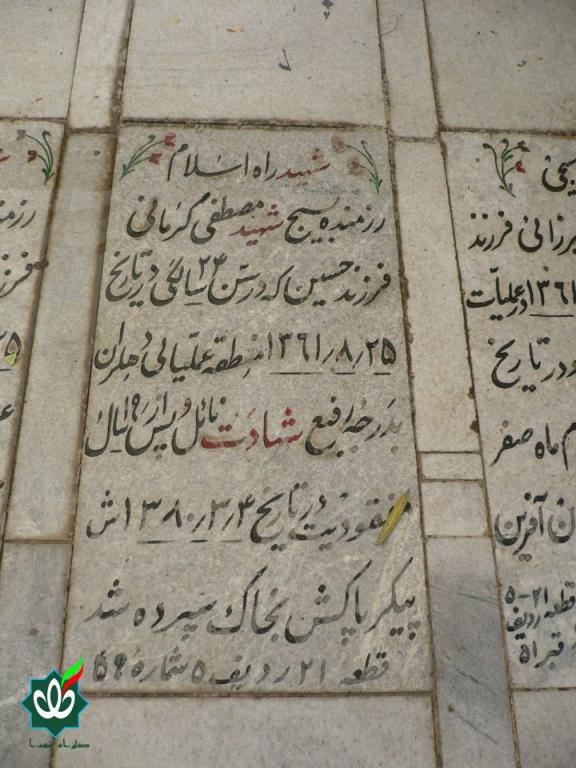 شهید راه اسلام
رزمنده بسیج شهید مصطفی کرمانی
فرزند حسین که در سن ۲۴ سالگی در تاریخ
۱۳۶۱/۸/۲۵ منطقه عملیاتی دهلران
بدرجه رفیع شهادت نائل و پس از ۱۹ سال
مفقودیت در تاریخ ۱۳۸۰/۳/۴ ش
پیکر پاکش بخاک سپرده شد
قطعه ۲۱ ردیف ۵ شماره ۵۶
میرزائی فرزند
۱۳۶۱ در عملیات
در تاریخ
ماه صفر
قطعه ۲۱-۵
ردیف